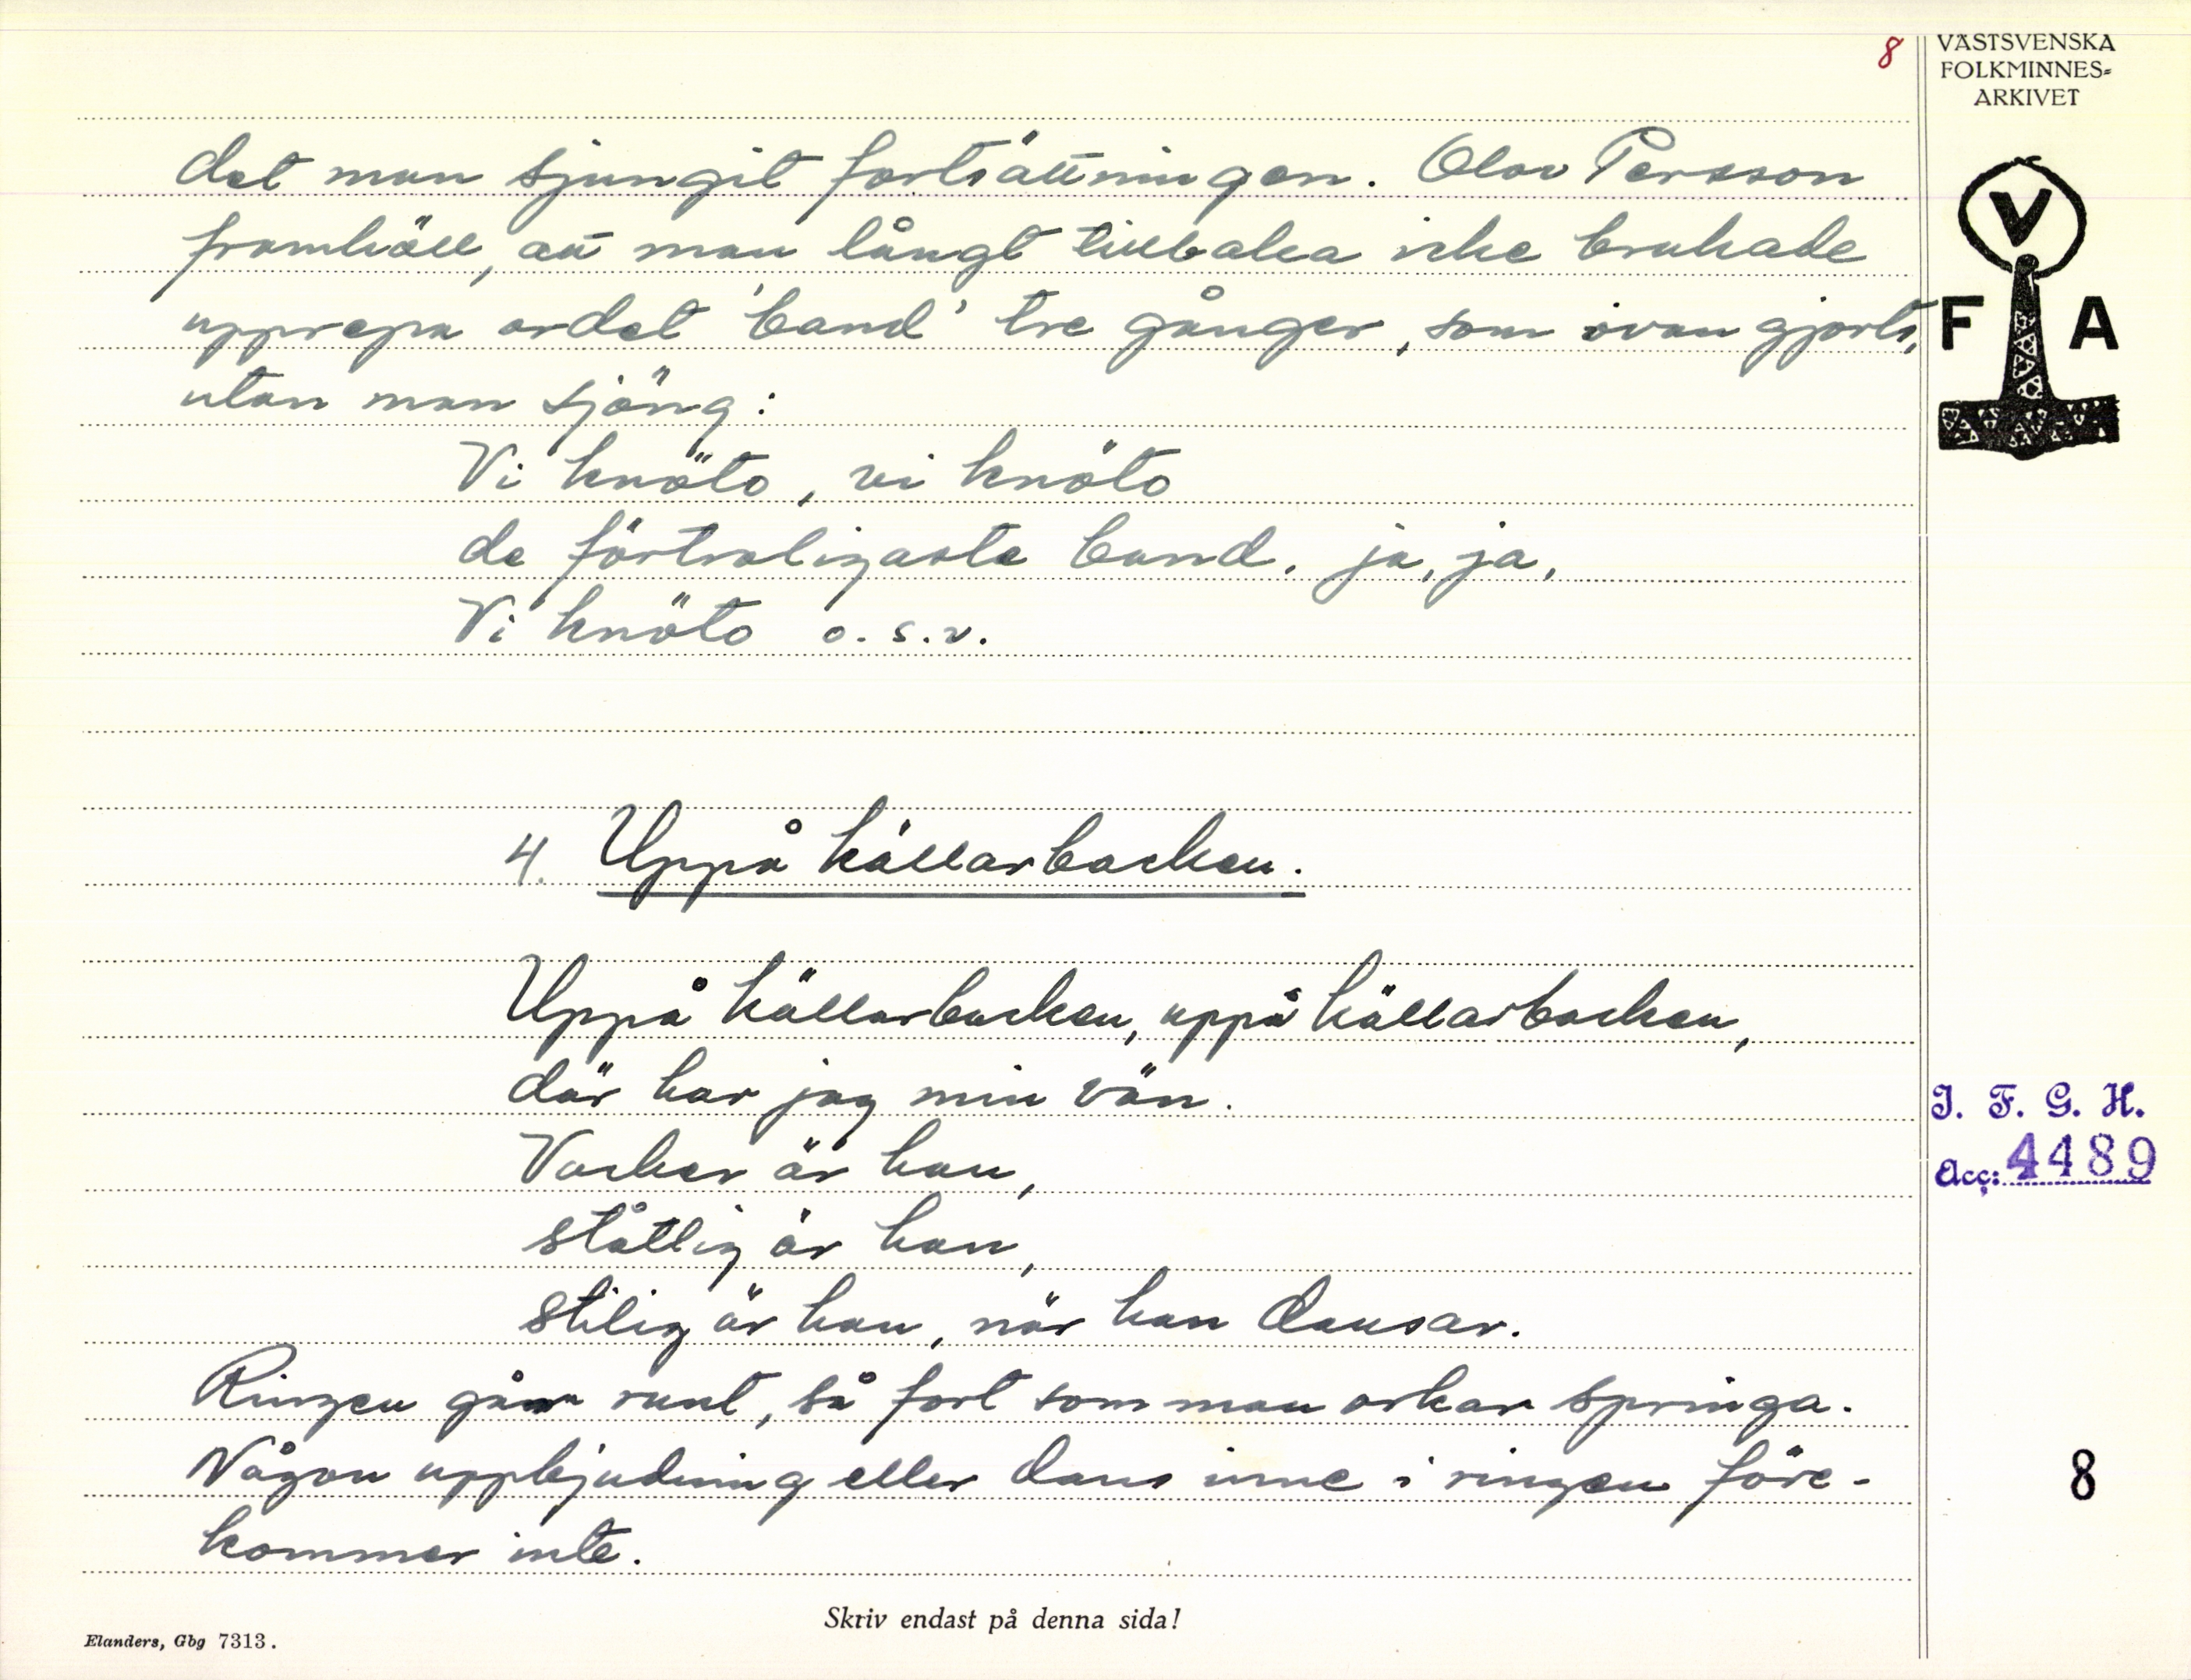 8
VÄSTSVENSKA
FOLKMINNES-
ARKIVET
det man sjungit fortsättningen. Olov Persson
framhöll, att man långt tillbaka icke brukade
upprepa ordet 'band' tre gånger, som ovan gjorts,
utan man sjöng:
Vi knöto, vi knöto
de förtroligaste band, ja, ja,
Vi knöto o.s.v.
V
F A
4. Uppå källarbacken.
Uppå källarbacken, uppå källarbacken,
där har jag min vän.
Vacker är han,
ståtlig är han,
stilig är han, när han dansar.
Ringen går runt, så fort som man orkar springa.
Någon uppbjudning eller dans inne i ringen före-
kommer inte.
I. F. G. H.
Acc: 4489
8
Skriv endast på denna sida!
Elanders, Gbg 7313.